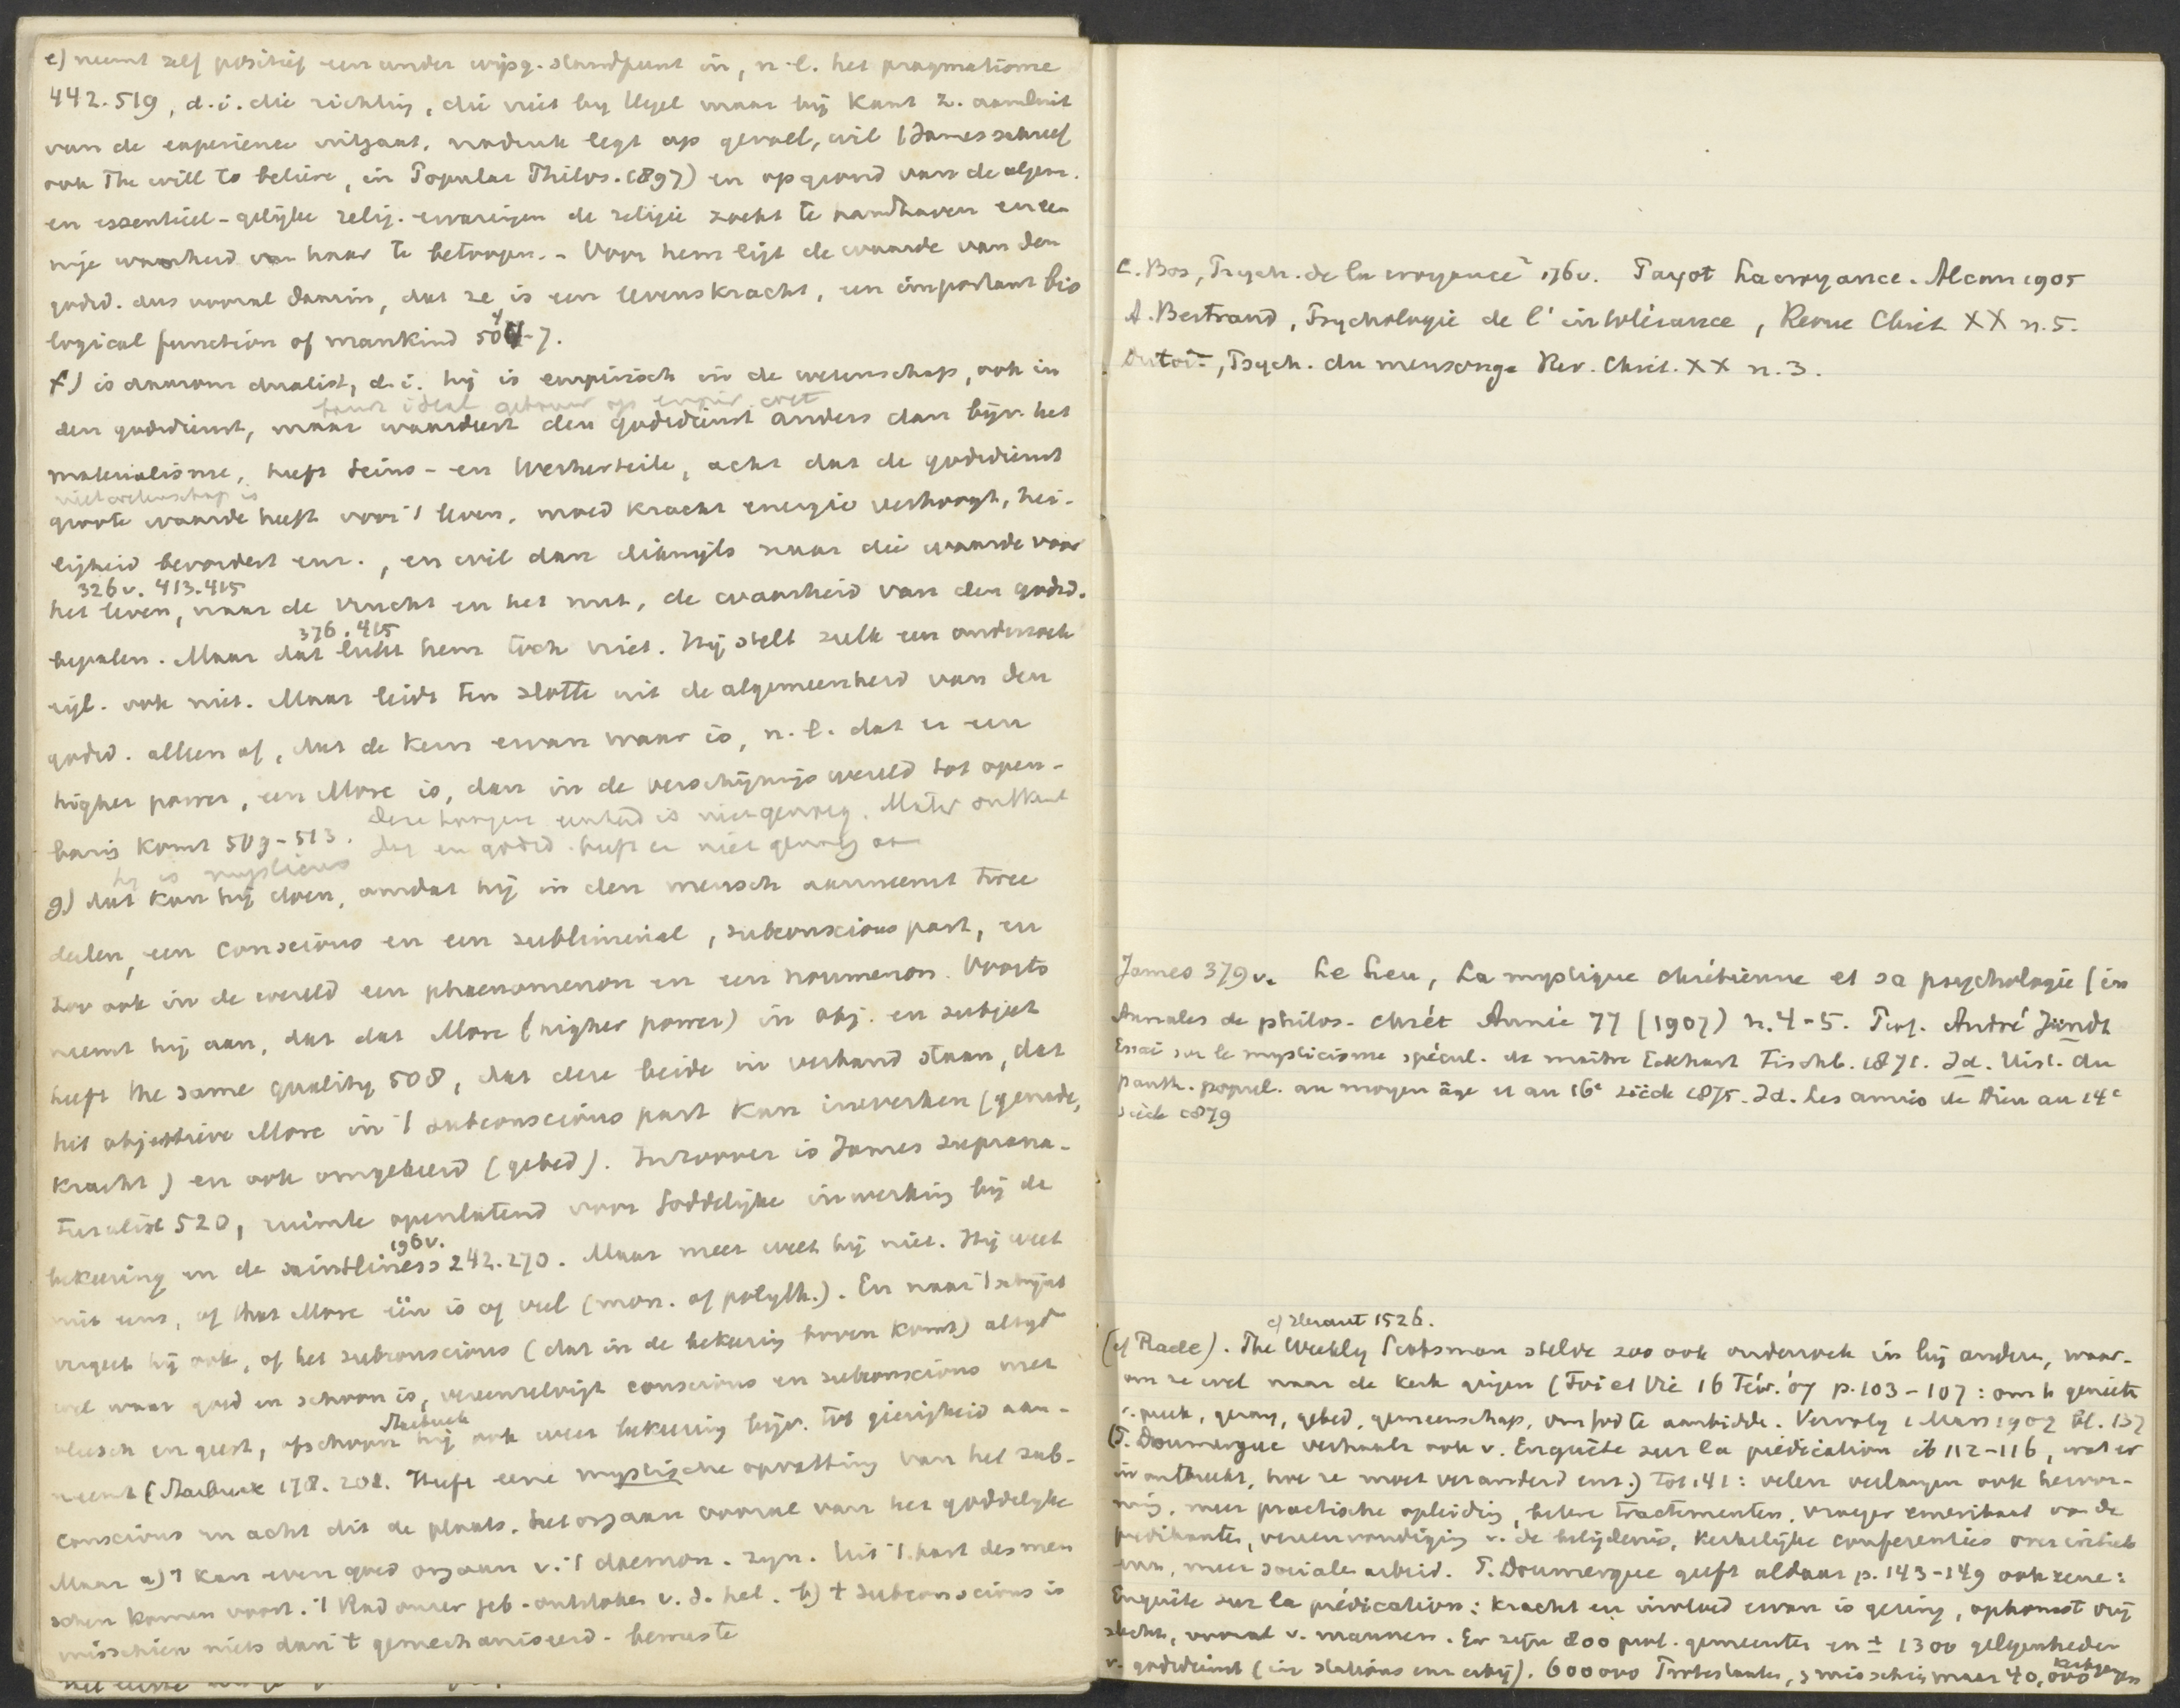 e) neemt zelf positief een ander wijsg. standpunt in, n.l. het pragmatisme
442.519, d.i. die richting, die niet bij Hegel maar bij Kant z. aansluit
van de experience uitgaat, nadruk legt op gevoel, wil (James schreef
ook The will to believe, in Popular Philos. 1897) en op grond van de algem.
en essentieel-gelijke relig. ervaringen de religie zoekt te handhaven en ee-
nige waarheid van haar te betoogen. - Voor hem ligt de waarde van den
godsd. dus vooral daarin, dat ze is een levenskracht, een important bio
logical function of mankind 504-7.
f) is daarom dualist, d.i. hij is empirisch in de wetenschap, ook in
den godsdienst, maar waardeert den godsdienst anders dan bijv. het
materialisme, heeft Seins- en Werturteile, acht dat de godsdienst
niet wetenschap is
groote waarde heeft voor 't leven, moed kracht energie verhoogt, hei-
ligheid bevordert enz., en wil dan dikwijls naar die waarde voor
326v. 413.415
het leven, naar de vrucht en het nut, de waarheid van den godsd.
376.415
bepalen. Maar dat lukt hem toch niet. Hij stelt zulk een onderzoek
eigl. ook niet. Maar leidt ten slotte uit de algemeenheid van den
godsd. alleen af, dat de kern ervan waar is, n.l. dat er een
higher power, een More is, dan in de verschijningswereld tot open-
baring komt 509-513. Deze hoogere eenheid is niet genoeg.
hij is mysticus
g) dat kan hij doen, omdat hij in den mensch aanneemt twee
deelen, een conscious en een subliminal, subconscious part, en
zoo ook in de wereld een phaenomenon en een noumenon. Voorts
neemt hij aan, dat dat More (higher power) in obj. en subject
heeft the same quality 508, dat deze beide in verband staan, dat
het objectieve More in 't subconscious part kan inwerken (genade,
kracht) en ook omgekeerd (gebed). In zoover is James suprana-
turalist 520, ruimte openlatend voor Goddelijke inwerking bij de
196v.
bekeering en de saintliness 242.270. Maar meer weet hij niet. Hij weet
niet eens, of that More één is of veel (mon. of polyth.). En naar 't schijnt
vergeet hij ook, of het subconscious (dat in de bekeering boven komt) altijd
wel waar goed en schoon is, vereenzelvigt conscious en subconscious met
Starbuck
vleesch en geest, ofschoon hij ook weer bekeering bijv. tot gierigheid aan-
neemt (Starbuck 178. 201. Heeft eene mystische opvatting van het sub-
conscious en acht dit de plaats, het orgaan vooral van het goddelijke
Maar a) 't kan even goed orgaan v. 't daemon. zijn. Uit 't hart des men
schen komen voort. 't Rad onzer geb. ontstoken v. d. hel. b) 't subconscious is
misschien niets dan 't gemechaniseerd - bewuste
C. Bos, Psych. de la croyance² 176v. Payot La croyance. Alcan 1905
A. Bertrand, Psychologie de l'intolérance, Revue Chrét XX n.5.
Dutoit, Psych. du mensonge Rev. Chrét. XX n. 3.
James 379v. Le Leu, La mystique chrétienne et sa psychologie (in
Annales de philos. chrét Année 77 (1907) n. 4-5. Prof. André Jundt
Essai sur le mysticisme spécul. de maître Eckhart Fischb. 1871. Id. Hist. du
panth. popul. au moyen âge et au 16e siècle 1875. Id. Les amis de Dieu au 14e
siècle 1879
cf Heraut 1526.
(cf Rade). The Weekly Scotsman stelde zoo ook onderzoek in bij andere, waar-
om ze wel naar de kerk gingen (Foi et Vie 16 Févr. '07 p.103-107: om te genieten
v. preek, gezang, gebed, gemeenschap, om God te aanbidden. Vervolg 1 Mars 1907 bl. 137
(P. Doumergue verhaalt ook v. Enquête sur la prédication ib 112-116, wat er
in ontbreekt, hoe ze moet veranderd enz.) tot 141: velen verlangen ook hervor-
ming, meer practische opleiding, betere tractementen, vroeger emeritaat van de
predikanten, vereenvoudiging v. de belijdenis, kerkelijke conferenties over critiek
enz, meer sociale arbeid. P. Doumergue geeft aldaar p. 143-149 ook eene:
Enquête sur la prédication: kracht en invloed ervan is gering, opkomst vrij
slecht, vooral v. mannen. Er zijn 800 prot. gemeenten en ± 1300 gelegenheden
v. godsdienst (in stations enz erbij). 600000 Protestanten, misschien maar 40,000 kerkgangers